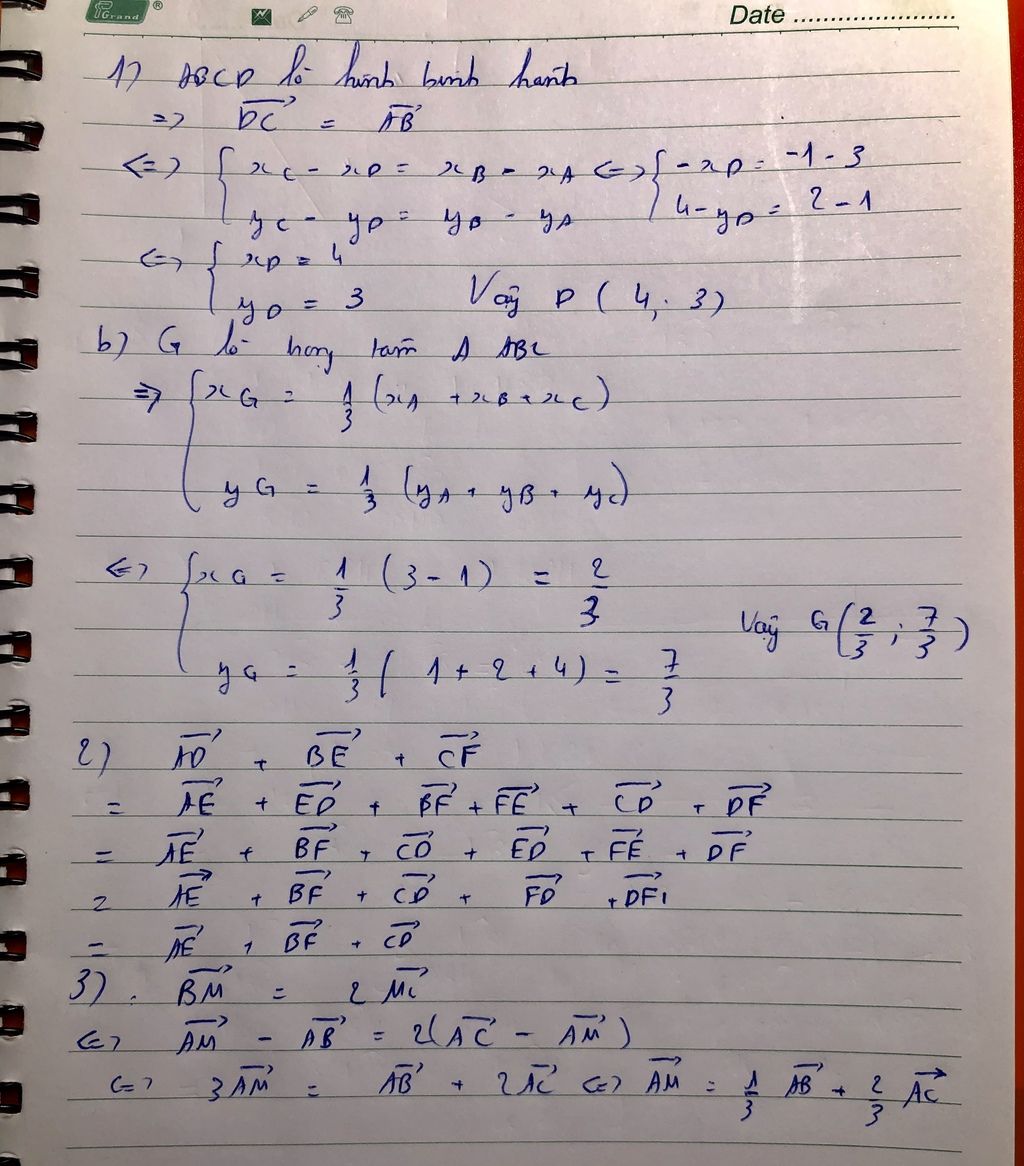 Grand ® Date ......................
1) ABCD là hình bình hành
=> \overrightarrow{DC} = \overrightarrow{AB}
<=> { x_C - x_D = x_B - x_A <=> { -x_D = -1 - 3
y_C - y_D = y_B - y_A 4 - y_D = 2 - 1
<=> { x_D = 4
y_D = 3 Vậy D ( 4 ; 3 )
b) G là trọng tâm Δ ABC
=> { x_G = \frac{1}{3} (x_A + x_B + x_C)
y_G = \frac{1}{3} (y_A + y_B + y_C)
<=> { x_G = \frac{1}{3} (3 - 1) = \frac{2}{3}
Vậy G(\frac{2}{3} ; \frac{7}{3})
y_G = \frac{1}{3} ( 1 + 2 + 4) = \frac{7}{3}
2) \overrightarrow{AD} + \overrightarrow{BE} + \overrightarrow{CF}
= \overrightarrow{AE} + \overrightarrow{ED} + \overrightarrow{BF} + \overrightarrow{FE} + \overrightarrow{CD} + \overrightarrow{DF}
= \overrightarrow{AE} + \overrightarrow{BF} + \overrightarrow{CD} + \overrightarrow{ED} + \overrightarrow{FE} + \overrightarrow{DF}
= \overrightarrow{AE} + \overrightarrow{BF} + \overrightarrow{CD} + \overrightarrow{FD} + \overrightarrow{DF}
= \overrightarrow{AE} + \overrightarrow{BF} + \overrightarrow{CD}
3) . \overrightarrow{BM} = 2 \overrightarrow{MC}
<=> \overrightarrow{AM} - \overrightarrow{AB} = 2(\overrightarrow{AC} - \overrightarrow{AM})
<=> 3\overrightarrow{AM} = \overrightarrow{AB} + 2\overrightarrow{AC} <=> \overrightarrow{AM} = \frac{1}{3} \overrightarrow{AB} + \frac{2}{3} \overrightarrow{AC}